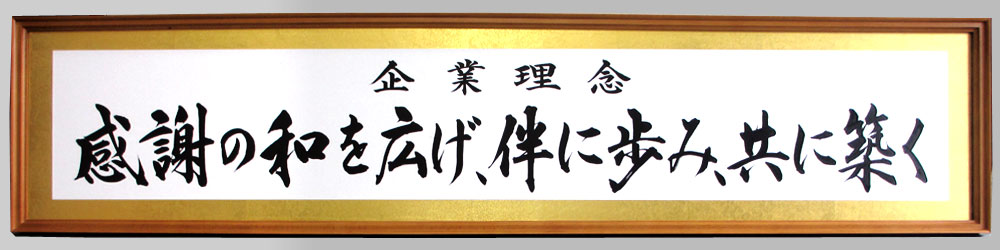 企業理念
感謝の和を広げ、伴に歩み、共に築く